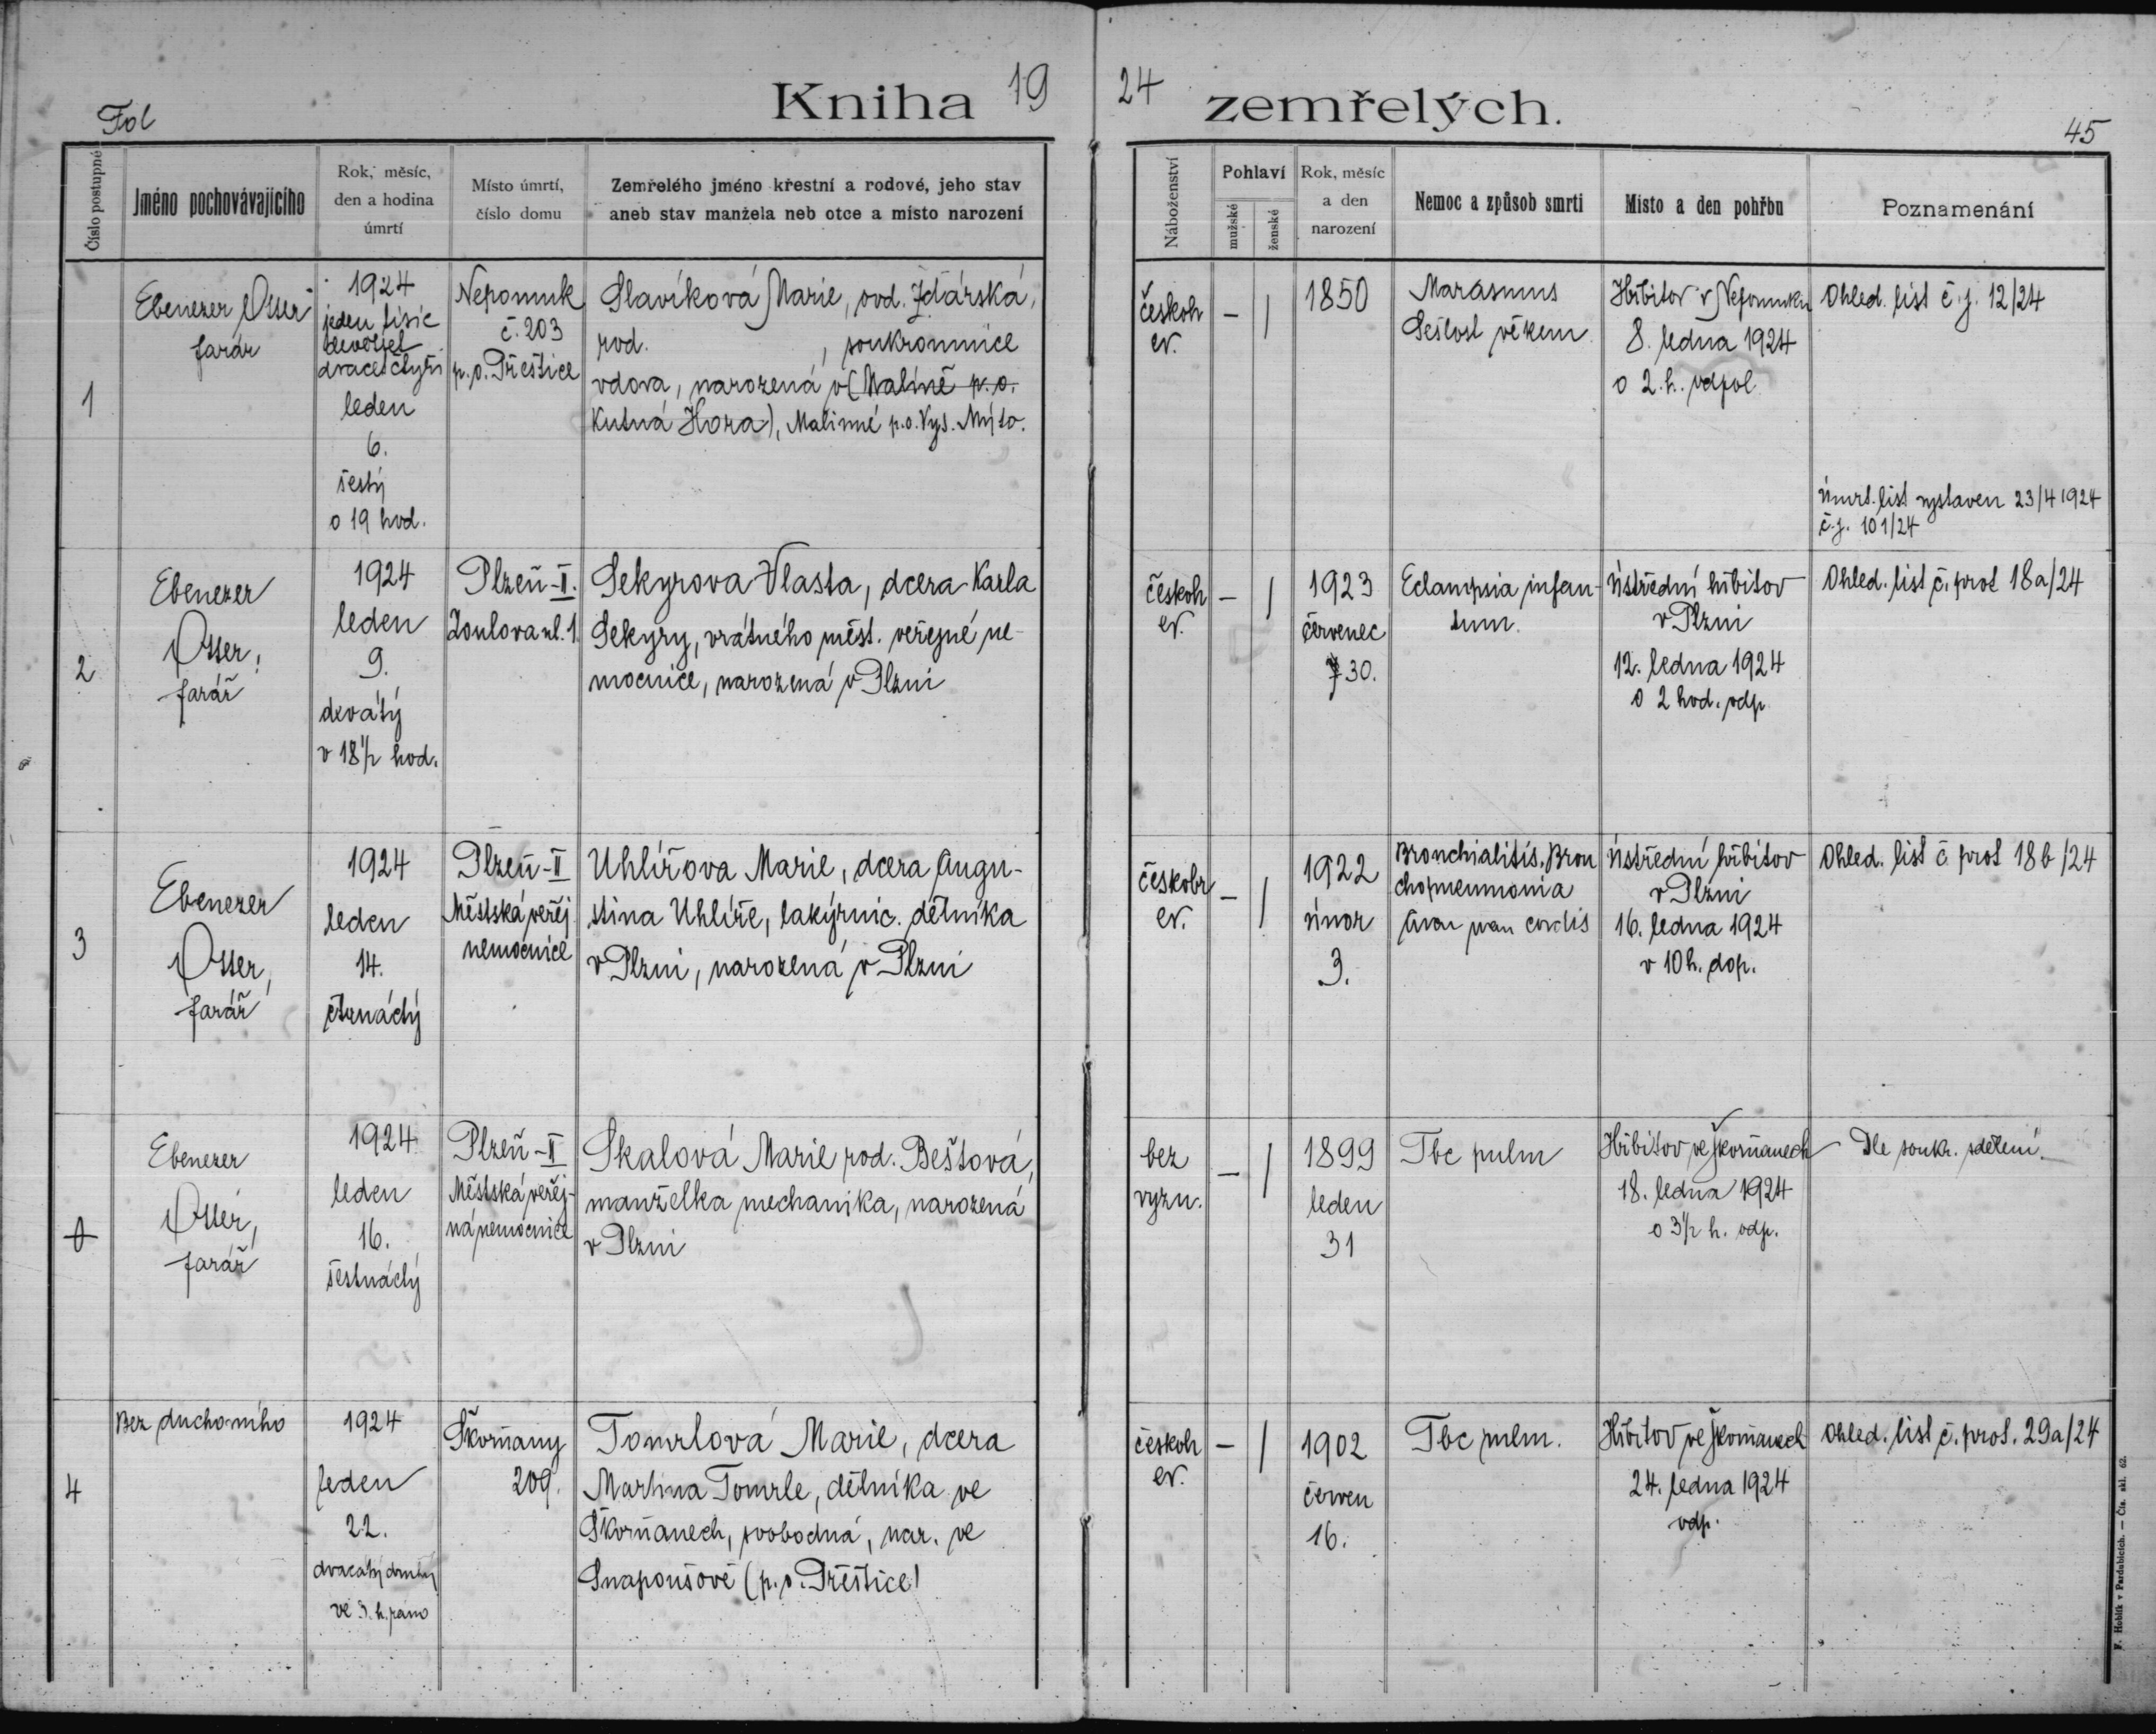 Kniha 19 24 zemřelých.
Fol
45
Číslo postupné
Jméno pochovávajícího
Rok, měsíc,
den a hodina
úmrtí
Místo úmrtí,
číslo domu
Zemřelého jméno křestní a rodové, jeho stav
aneb stav manžela neb otce a místo narození
Náboženství
Pohlaví
mužské
ženské
Rok, měsíc
a den
narození
Nemoc a způsob smrti
Místo a den pohřbu
Poznamenání
1
Ebenezer Otter
farář
1924
jeden tisíc
devětset
dvacetčtyři
leden
6.
šestý
o 19 hod.
Nepomuk
č. 203
p. o. Přeštice
Slavíková Marie, ovd. Žďárská,
rod. , soukromnice
vdova, narozená v (Malíně p. o.
Kutná Hora), Malinné p. o. Vys. Mýto.
českobr
ev.
—
/
1850
Marasmus
Sešlost věkem
Hřbitov v Nepomuku
8. ledna 1924
o 2. h. odpol.
Ohled. list č. j. 12/24
Úmrt. list vystaven 23/4 1924
č. j. 101/24
2
Ebenezer
Otter,
farář
1924
leden
9.
devátý
v 18 1/2 hod.
Plzeň-II.
Zoulova ul. 1.
Sekyrova Vlasta, dcera Karla
Sekyry, vrátného měst. veřejné ne-
mocnice, narozená v Plzni
českobr
ev.
—
/
1923
červenec
30.
Eclampsia infan-
tum.
Ústřední hřbitov
v Plzni
12. ledna 1924
o 2 hod. odp.
Ohled. list č. prot 18a/24
3
Ebenezer
Otter,
farář
1924
leden
14.
čtrnáctý
Plzeň-II
Městská veřej
nemocnice
Uhlířova Marie, dcera Augu-
stina Uhlíře, lakýrnic. dělníka
v Plzni, narozená v Plzni
českobr
ev.
—
/
1922
únor
3.
Bronchialitis, Bron
chopneumonia
cordis
Ústřední hřbitov
v Plzni
16. ledna 1924
v 10 h. dop.
Ohled. list č prot 18b/24
Ebenezer
Otter,
farář
1924
leden
16.
šestnáctý
Plzeň-II
Městská veřej-
ná nemocnice
Skalová Marie rod. Beštová,
manželka mechanika, narozená
v Plzni
bez
vyzn.
—
/
1899
leden
31
Tbc pulm
Hřbitov ve Škorňanech
18. ledna 1924
o 3 1/2 h. odp.
Dle soukr. sdělení
4
Bez duchovního
1924
leden
22.
dvacátý druhý
ve 3. h. ráno
Škorňany
209.
Tomrlová Marie, dcera
Martina Tomrle, dělníka ve
Škorňanech, svobodná, nar. ve
Snapoušově (p. o. Přeštice)
českobr
ev.
—
/
1902
červen
16.
Tbc pulm.
Hřbitov ve Škorňanech
24. ledna 1924
odp.
Ohled. list č. prot. 29a/24
F. Hoblík v Pardubicích. — Čís. skl. 62.